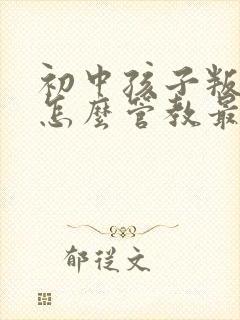 初中孩子叛
怎麼管教最
郁從文